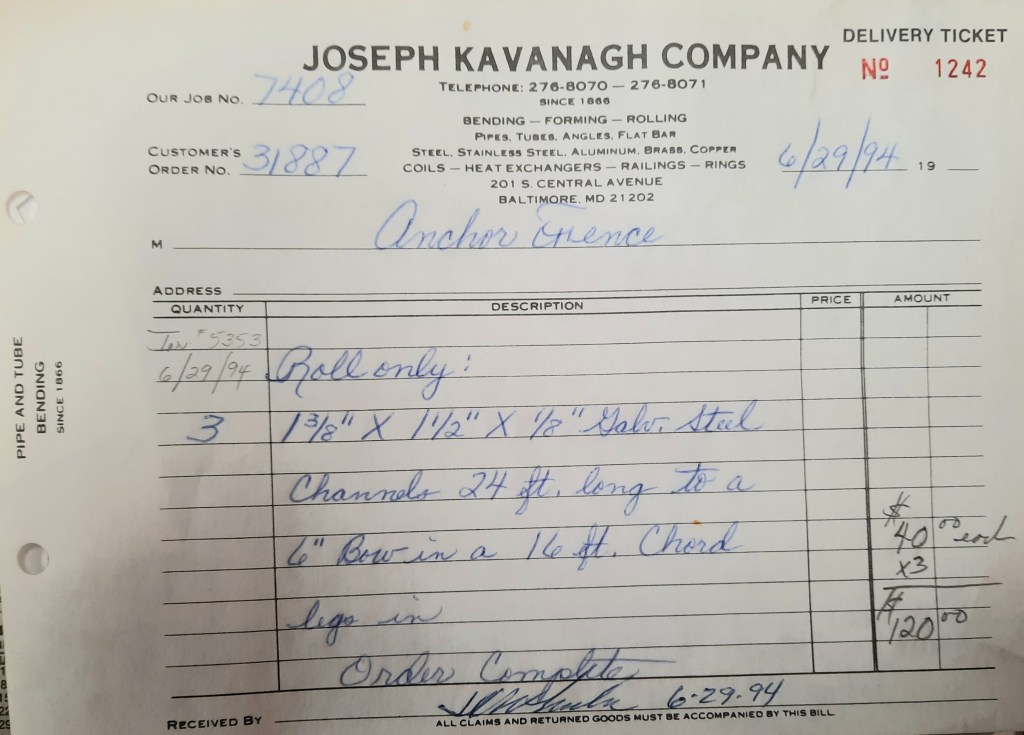 DELIVERY TICKET
JOSEPH KAVANAGH COMPANY
Nº 1242
TELEPHONE: 276-8070 — 276-8071
SINCE 1866
OUR JOB NO. 7408
BENDING — FORMING — ROLLING
PIPES, TUBES, ANGLES, FLAT BAR
STEEL, STAINLESS STEEL, ALUMINUM, BRASS, COPPER
CUSTOMER'S
ORDER NO. 31887
COILS — HEAT EXCHANGERS — RAILINGS — RINGS
6/29/94 19
201 S. CENTRAL AVENUE
BALTIMORE, MD 21202
M Anchor Fence
ADDRESS
QUANTITY DESCRIPTION PRICE AMOUNT
#5353
6/29/94 Roll only:
3 1 3/8" X 1 1/2" X 1/8" Galv. Steel
Channels 24 ft. long to a
6" Bow in a 16 ft. Chord $40 00 each
x3
legs in $120 00
Order Complete
6-29-94
RECEIVED BY
ALL CLAIMS AND RETURNED GOODS MUST BE ACCOMPANIED BY THIS BILL
PIPE AND TUBE
BENDING
SINCE 1866